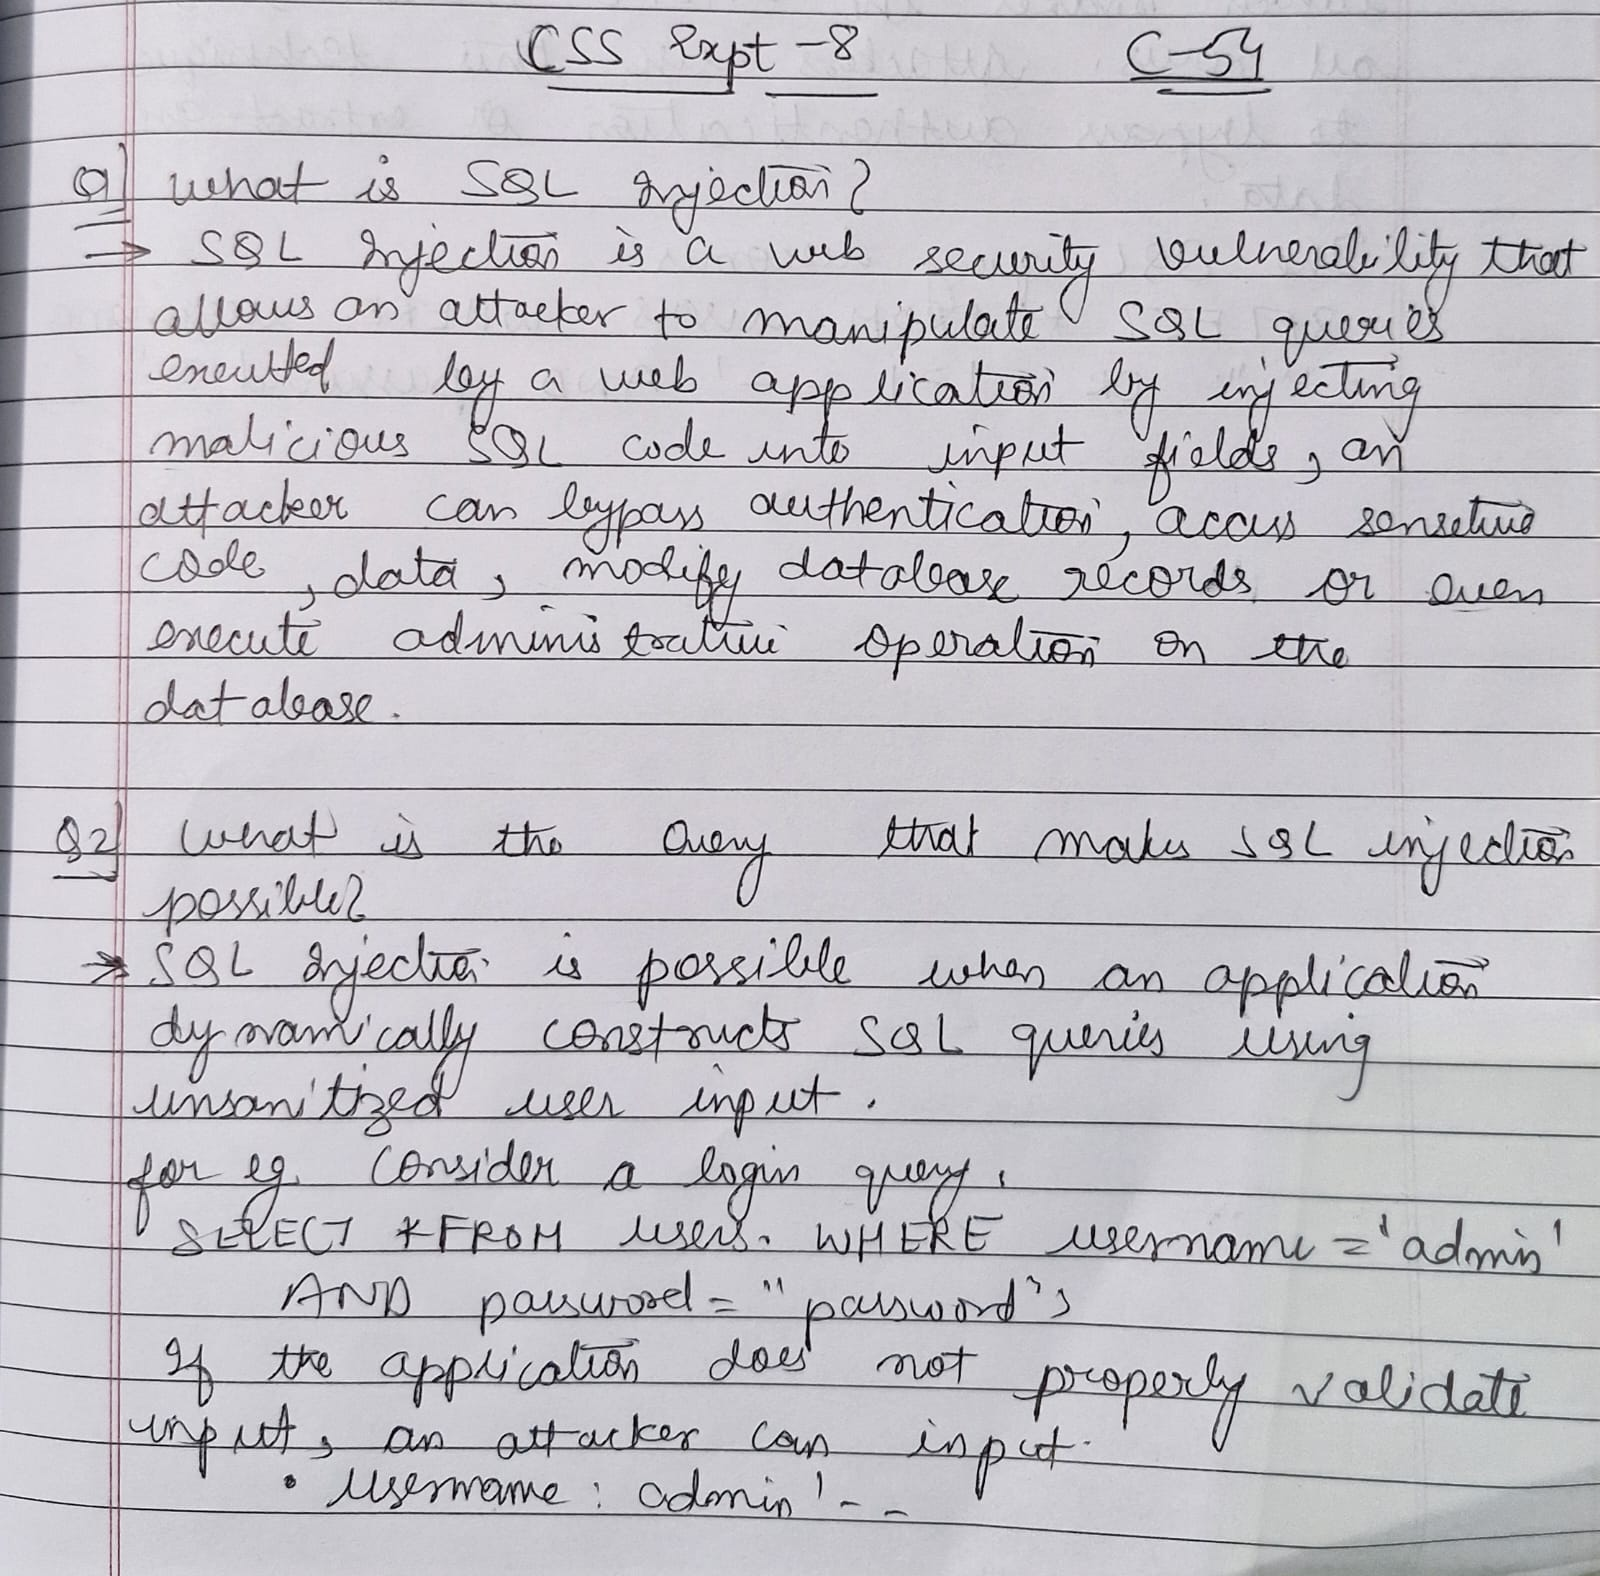 CSS Expt -8 C-54
Q1 What is SQL Injection?
→ SQL Injection is a web security vulnerability that
allows an attacker to manipulate SQL queries
executed by a web application by injecting
malicious SQL code into input fields, an
attacker can bypass authentication, access sensetive
code, data, modify database records or even
execute administrative operation on the
database.
Q2 What is the Query that makes SQL injection
possible?
→ SQL Injection is possible when an application
dynamically constructs SQL queries using
unsanitized user input.
for eg. Consider a login query,
SELECT * FROM users. WHERE username = 'admin'
AND password = "password";
If the application does not properly validate
input, an attacker can input.
• Username: admin' - -